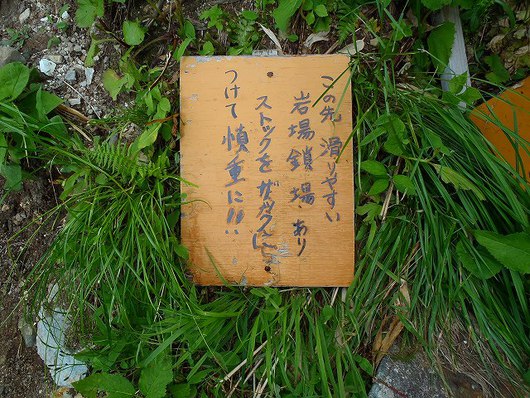 この先、滑りやすい
岩場鎖場あり
ストックをザックに
つけて慎重に!!